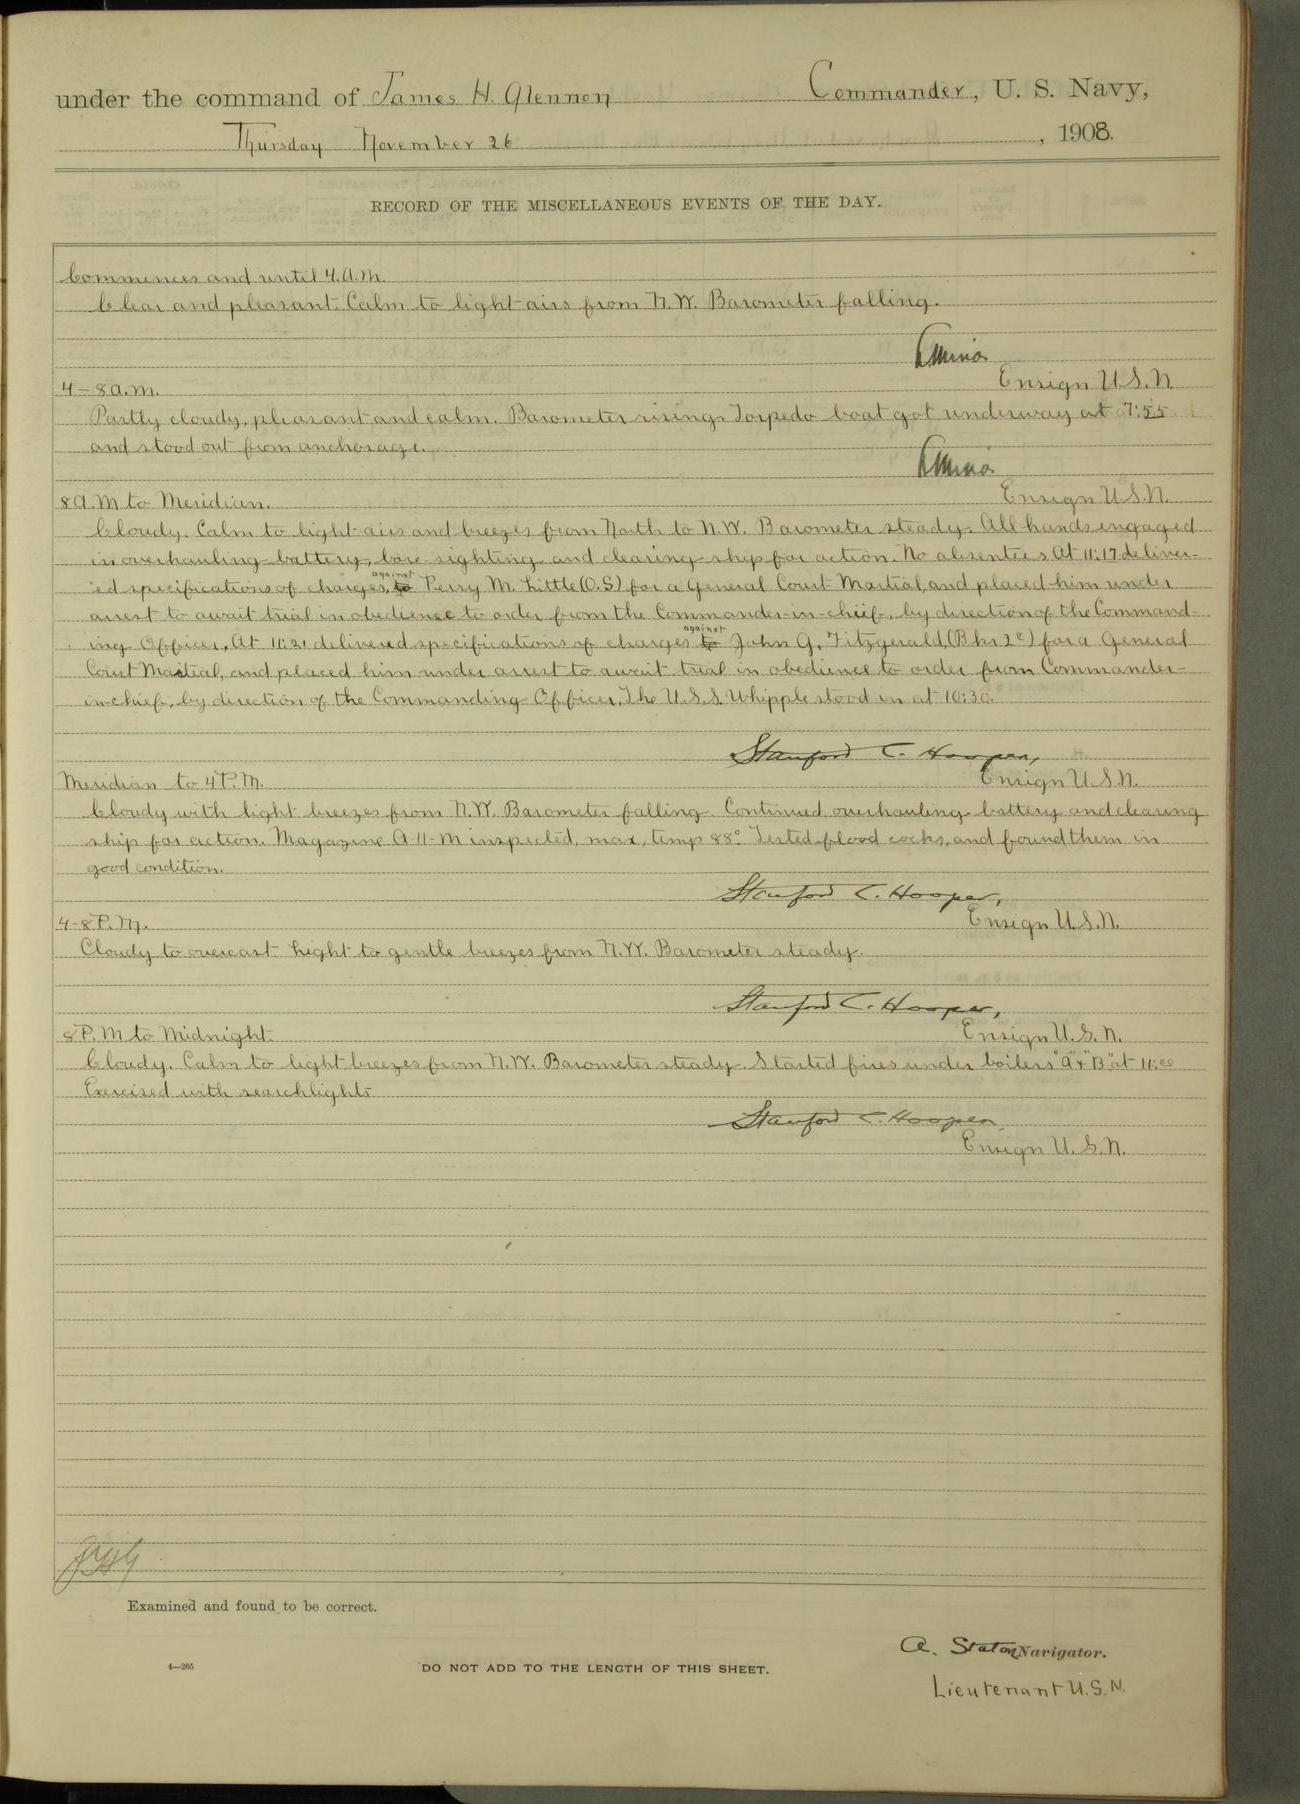 under the command of James H. Glennon Commander, U. S. Navy,
Thursday November 26, 1908.
RECORD OF THE MISCELLANEOUS EVENTS OF THE DAY.
Commences and until 4.A.M.
Clear and pleasant. Calm to light airs from N.W. Barometer falling.
Ensign U.S.N
4 – 8 a.m.
Partly cloudy, pleasant and calm. Barometer rising. Torpedo boat got underway at 7:55
and stood out from anchorage.
8 A.M to Meridian.
Ensign U.S.N.
Cloudy. Calm to light airs and breezes from North to N.W. Barometer steady. All hands engaged
in overhauling battery, bore sighting and clearing ship for action. No absentees At 11:17 deliver-
ed specifications of charges, to against Perry M. Little (O.S) for a General Court Martial, and placed him under
arrest to await trial in obedience to order from the Commander-in-chief, by direction of the Command-
ing Officer, At 11:21 delivered specifications of charges to against John G. Fitzgerald, (Bhr 2c) for a General
Court Martial, and placed him under arrest to await trial in obedience to order from Commander-
in-chief, by direction of the Commanding Officer. The U.S.S. Whipple stood in at 10:30.
Stanford C. Hooper,
Ensign U.S.N.
Meridian to 4 P.M.
Cloudy with light breezes from N.W. Barometer falling. Continued overhauling battery and clearing
ship for action. Magazine A-11-M inspected, max, temp 88° Tested flood cocks, and found them in
good condition.
Stanford C. Hooper,
Ensign U.S.N.
4-8 P.M.
Cloudy to overcast. Light to gentle breezes from N.W. Barometer steady.
Stanford C. Hooper,
8 P.M to Midnight.
Ensign U.S.N.
Cloudy. Calm to light breezes from N.W. Barometer steady. Started fires under boilers "A" & "B" at 11:00
Exercised with searchlights
Stanford C. Hooper
Ensign U.S.N.
JHG
Examined and found to be correct.
A. Staton Navigator.
4—265
DO NOT ADD TO THE LENGTH OF THIS SHEET.
Lieutenant U.S.N.